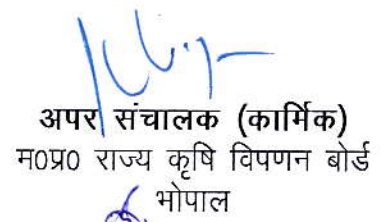 अपर संचालक (कार्मिक)
म0प्र0 राज्य कृषि विपणन बोर्ड
भोपाल